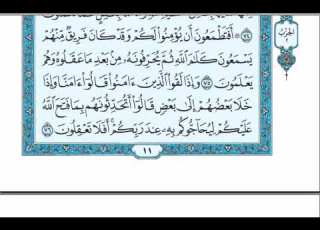 أَفَتَطْمَعُونَ أَن يُؤْمِنُوا۟ لَكُمْ وَقَدْ كَانَ فَرِيقٌ مِّنْهُمْ
يَسْمَعُونَ كَلَٰمَ ٱللَّهِ ثُمَّ يُحَرِّفُونَهُۥ مِنۢ بَعْدِ مَا عَقَلُوهُ وَهُمْ
يَعْلَمُونَ ٧٥ وَإِذَا لَقُوا۟ ٱلَّذِينَ ءَامَنُوا۟ قَالُوٓا۟ ءَامَنَّا وَإِذَا
خَلَا بَعْضُهُمْ إِلَىٰ بَعْضٍ قَالُوٓا۟ أَتُحَدِّثُونَهُم بِمَا فَتَحَ ٱللَّهُ
عَلَيْكُمْ لِيُحَآجُّوكُم بِهِۦ عِندَ رَبِّكُمْ أَفَلَا تَعْقِلُونَ ٧٦
١١